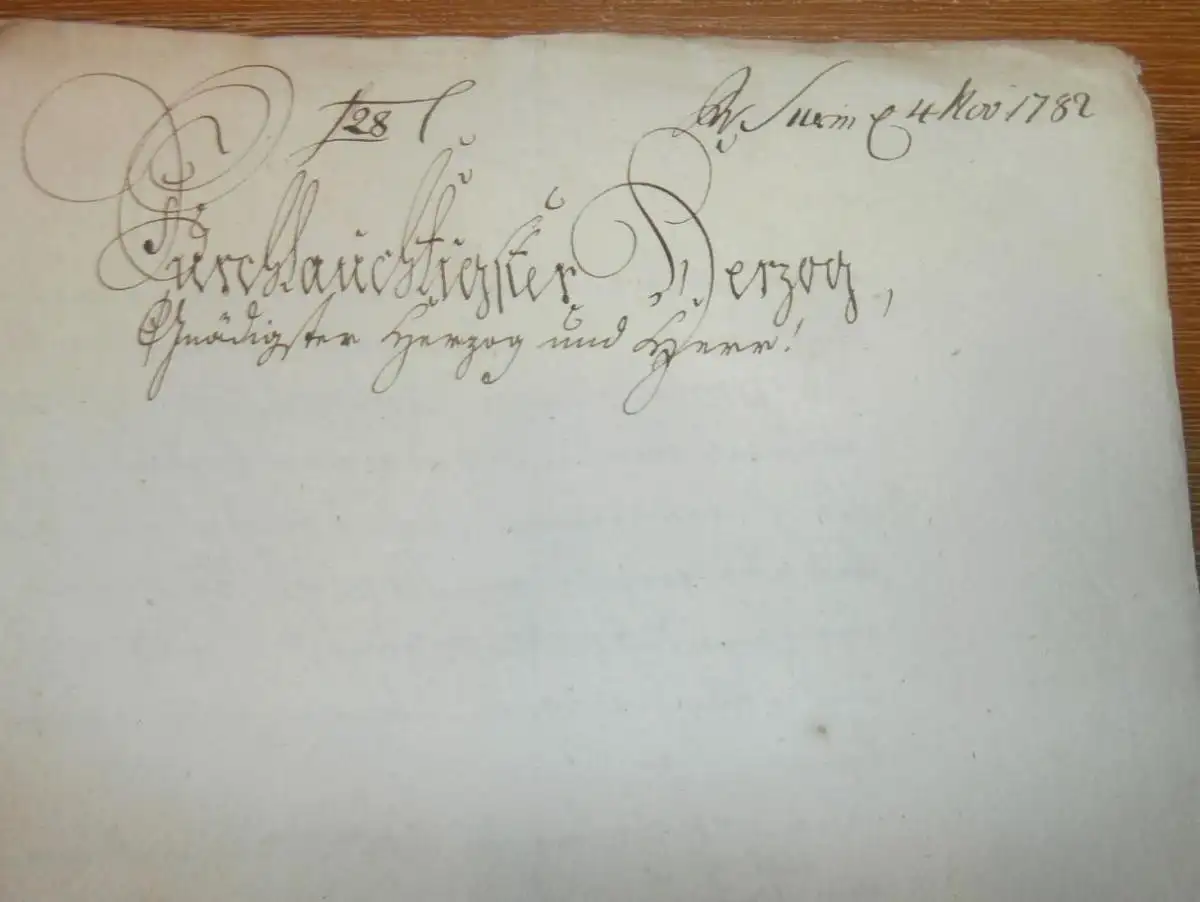 128
4 Nov 1782
Durchlauchtigster Herzog,
Gnädigster Herzog und Herr!